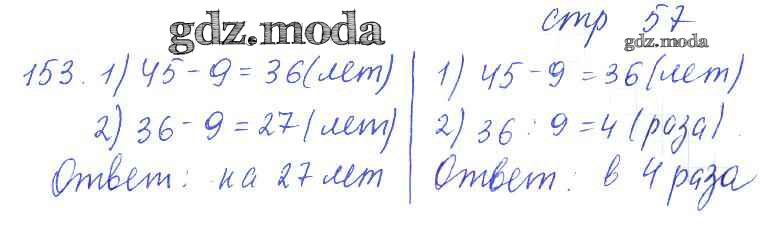 gdz.moda
стр 57
gdz.moda
153. 1) 45-9=36(лет)
2) 36-9=27(лет)
Ответ: на 27 лет
1) 45-9=36(лет)
2) 36:9=4(раза).
Ответ: в 4 раза